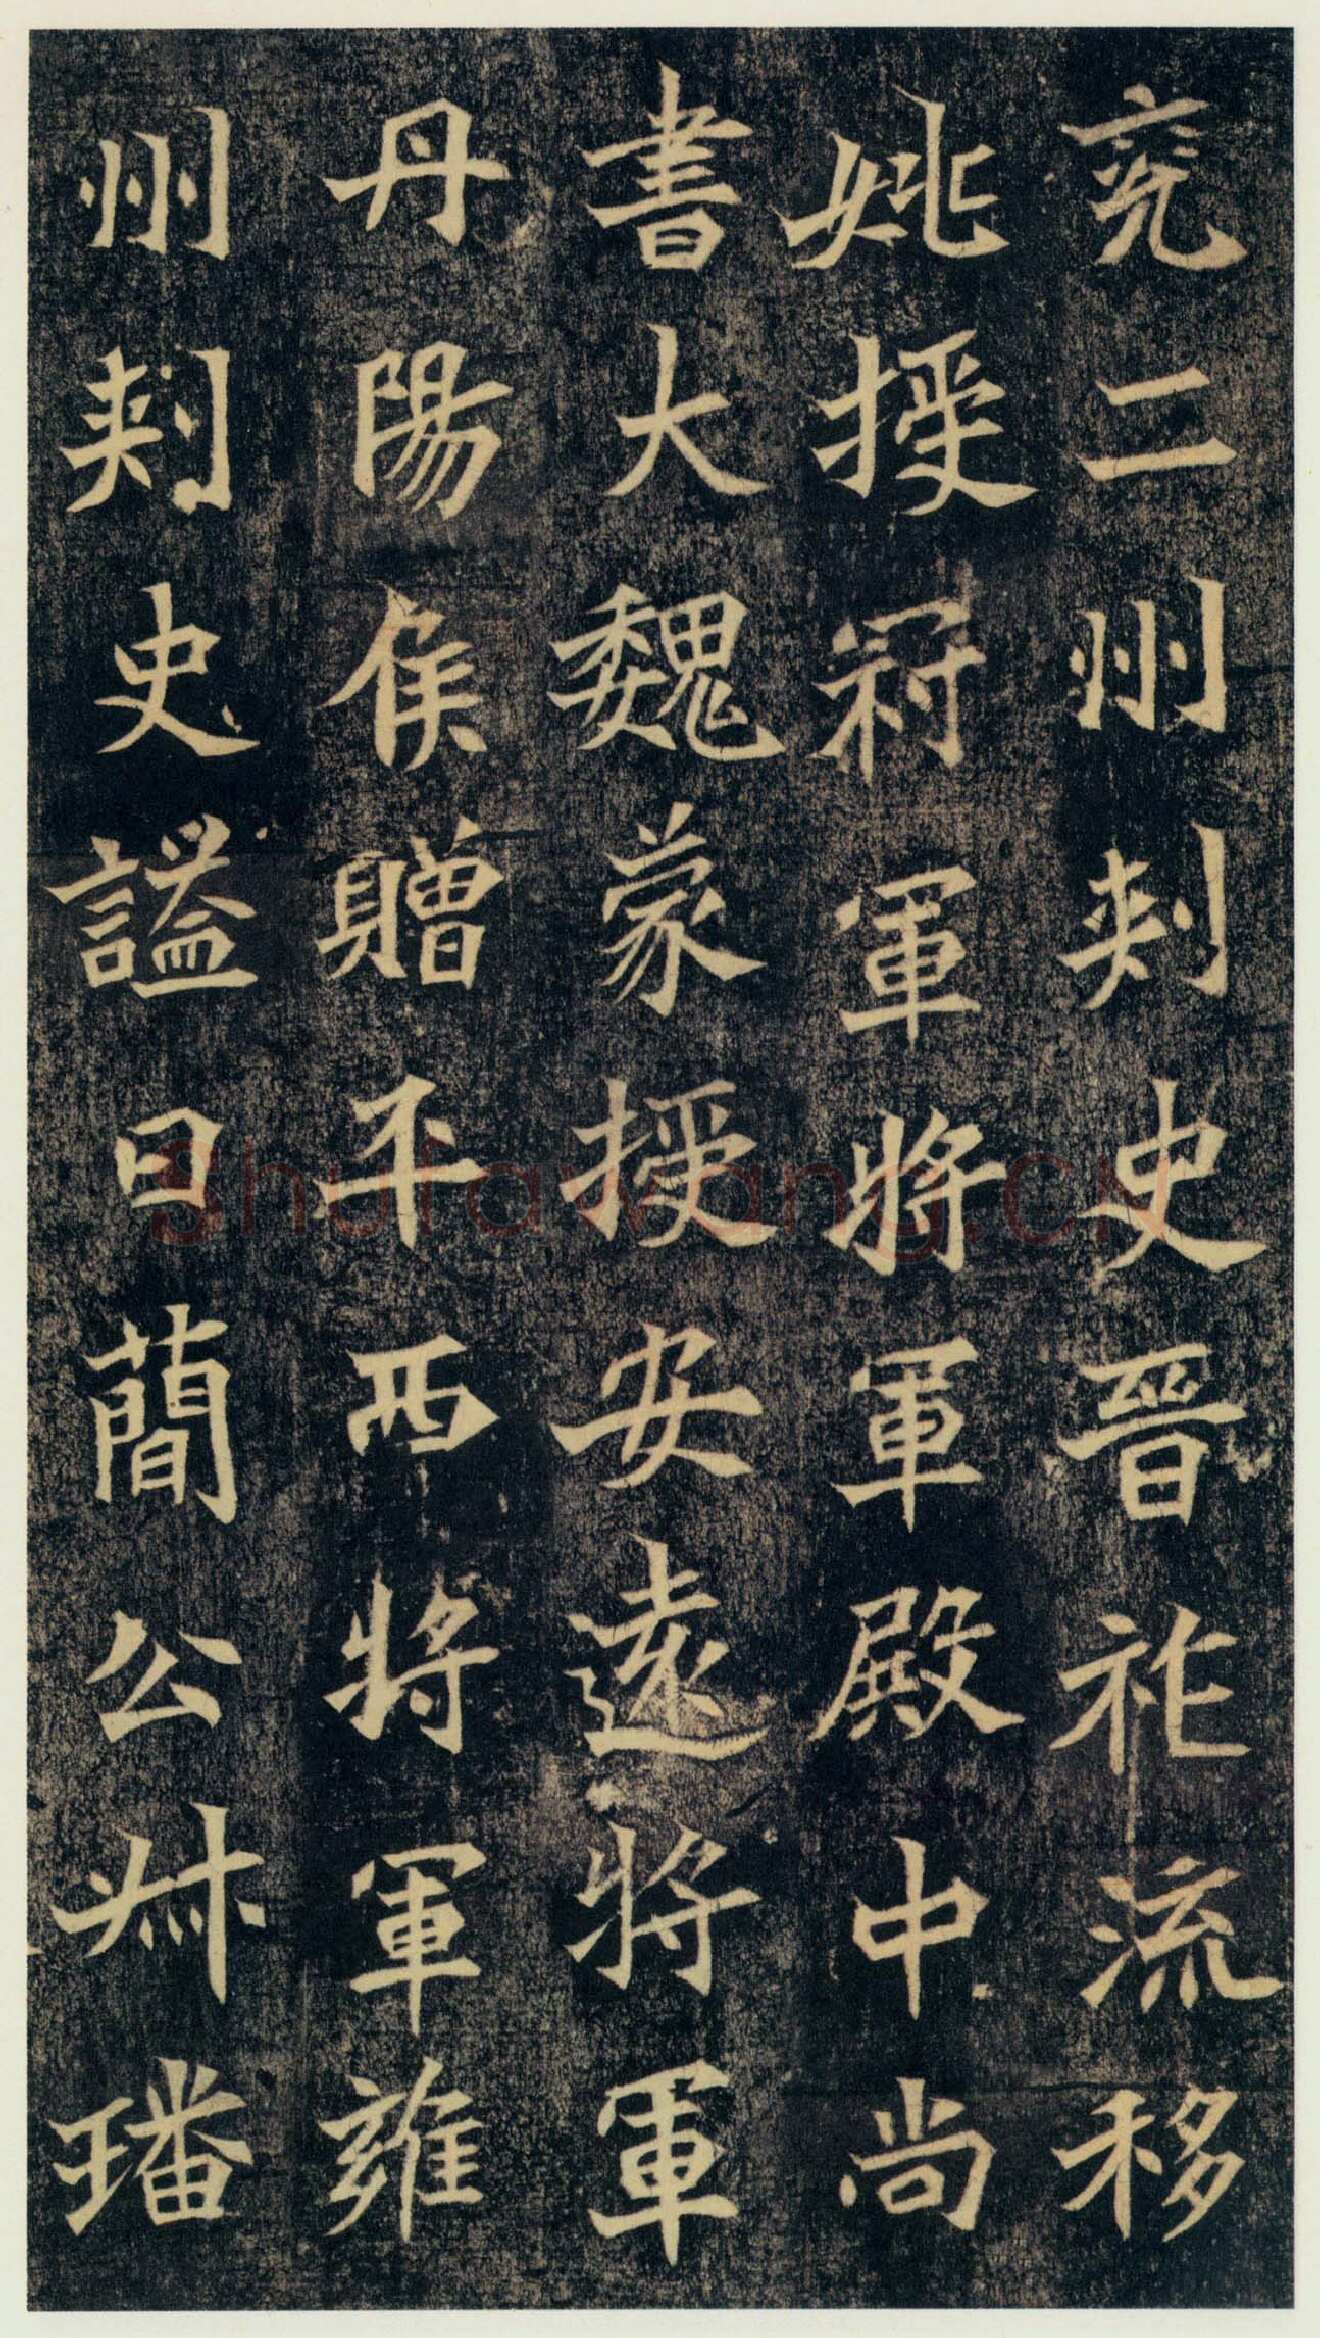 兖二州刺史晉祚流移
姚授冠軍將軍殿中尚
書大魏蒙授安遠將軍
丹陽侯贈平西將軍雍
州刺史謚曰蕳公叔璠
Shufawang.CN